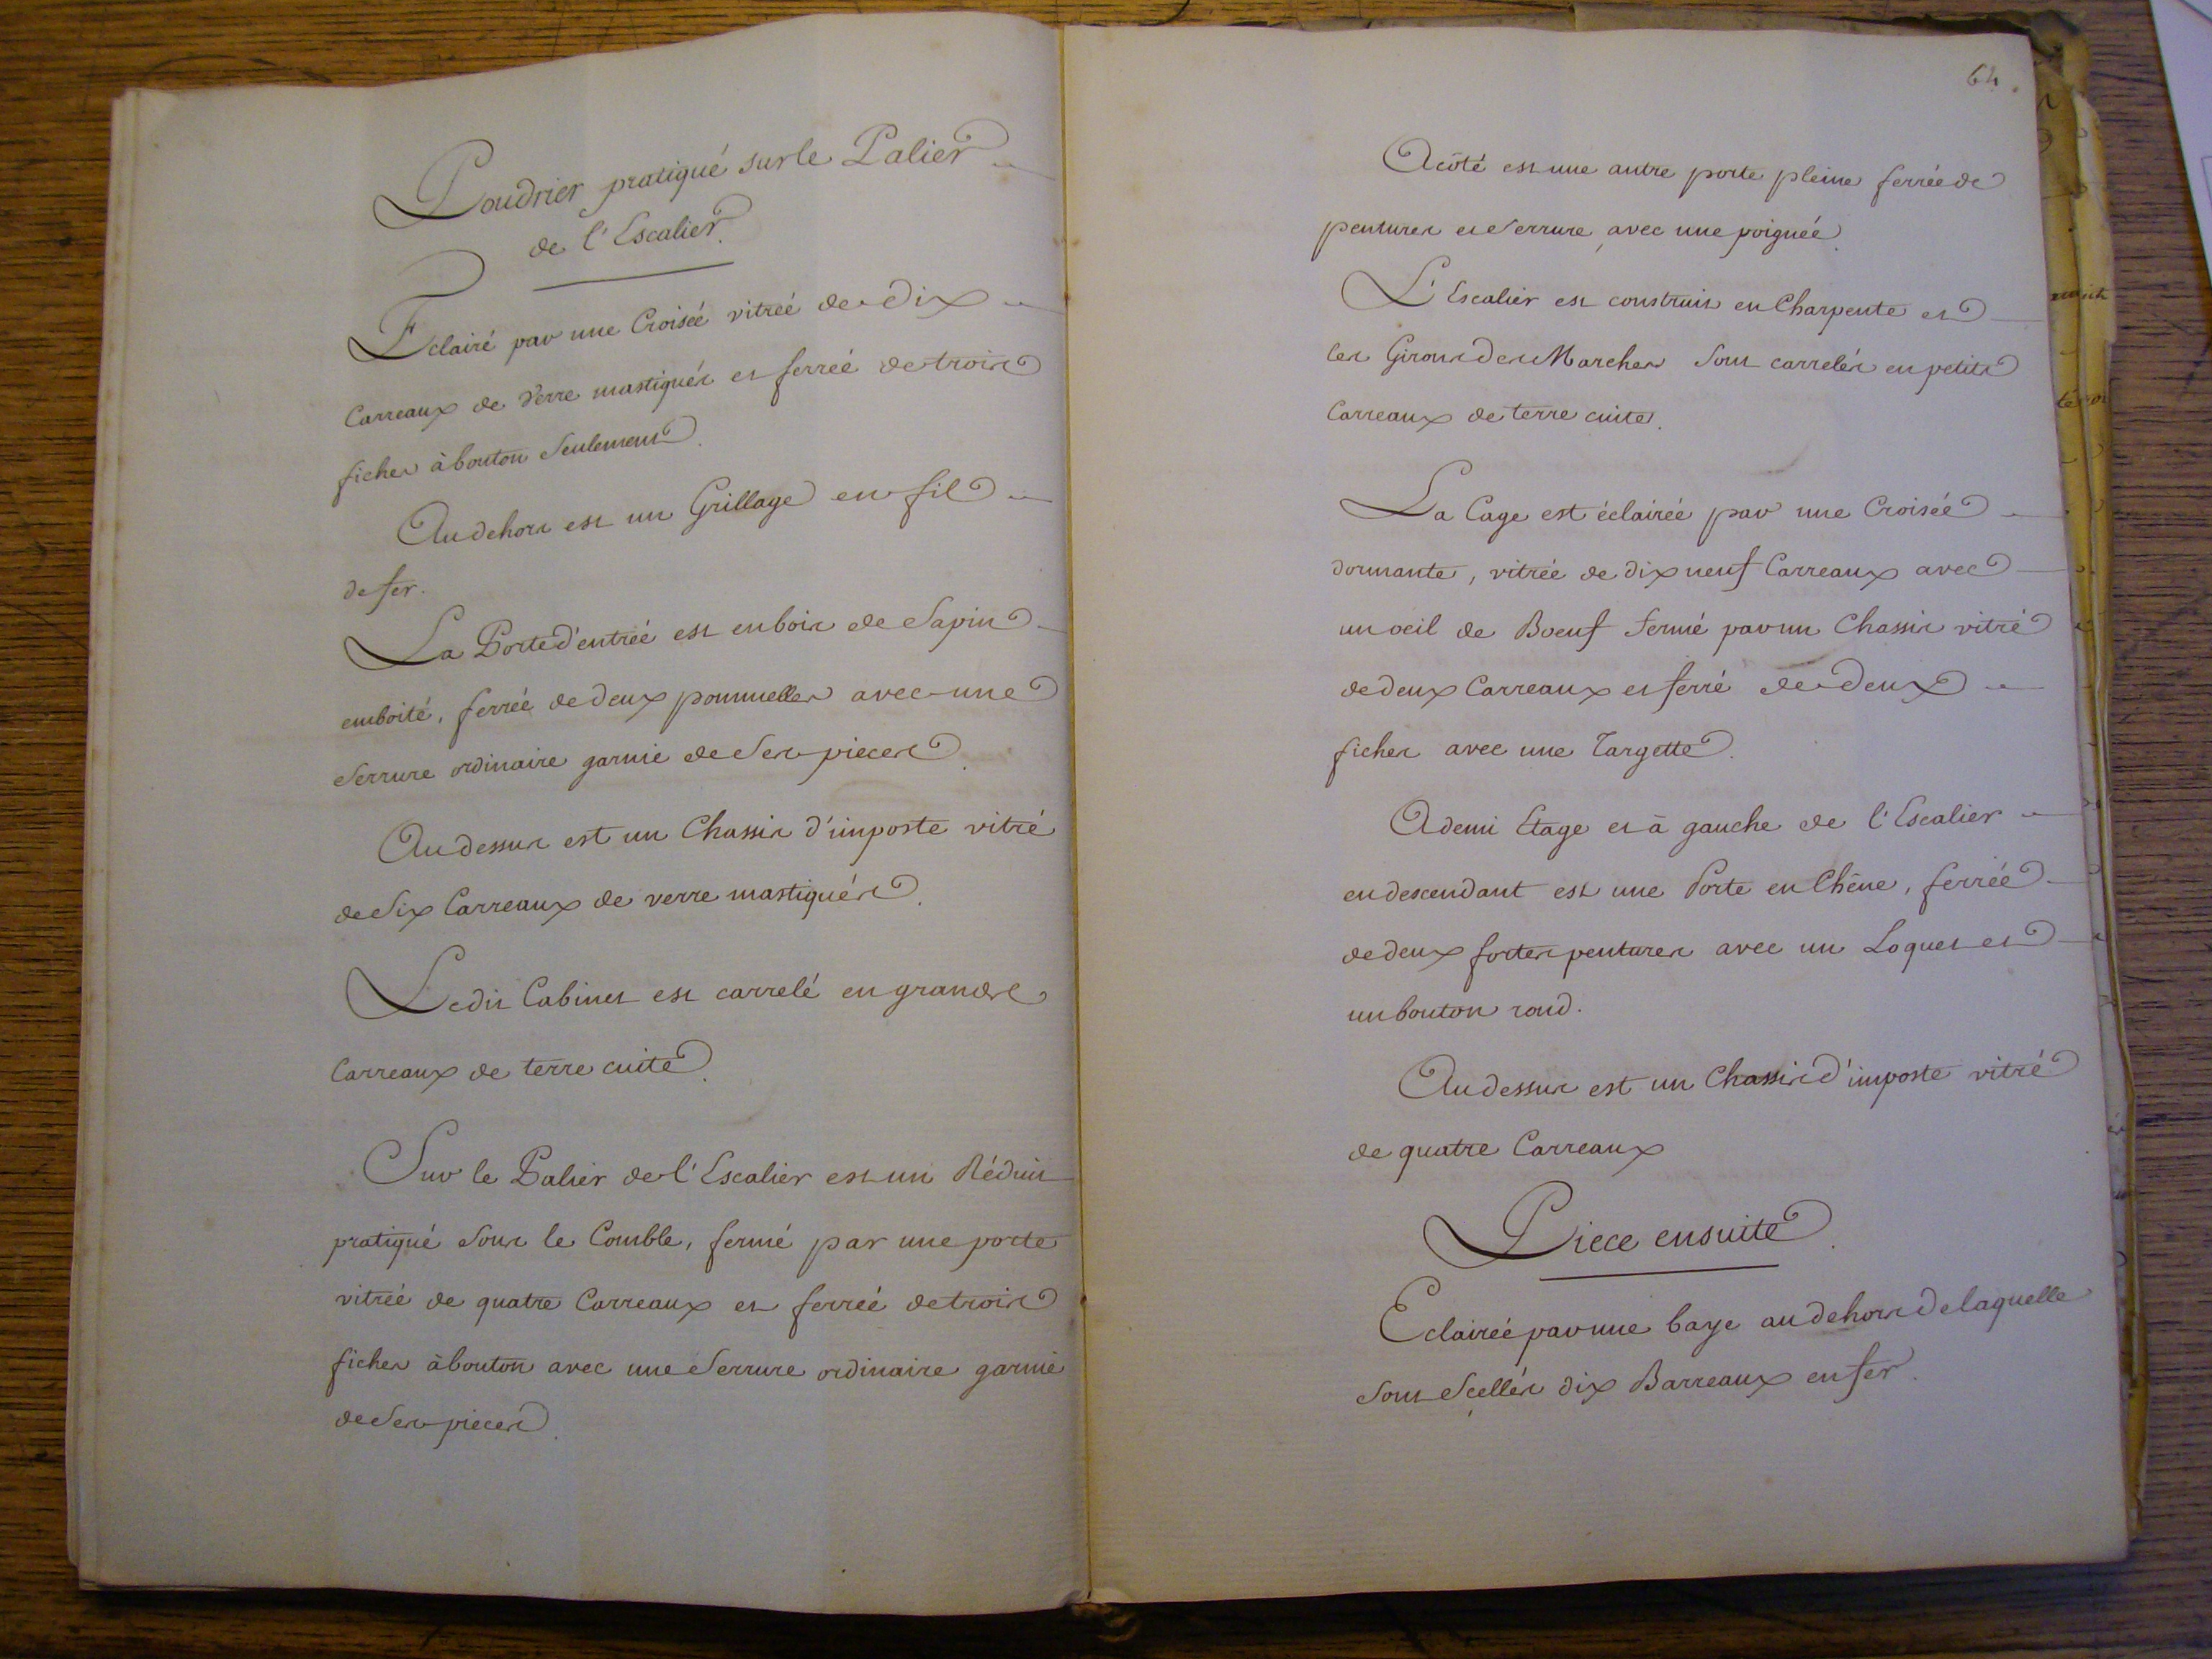 Poudrier pratiqué sur le Palier
de l'Escalier.
Eclairé par une Croisée vitreé de Dix
Carreaux de Verre mastiqués et ferreé de trois
fiches à bouton Seulement.
Au dehors est un Grillage en fil
de fer.
La Porte d'entreé est en bois de Sapin
emboité, ferreé de deux pommelles avec une
Serrure ordinaire garnie de Ses pieces.
Au dessus est un Chassis d'imposte vitré
de Six Carreaux de verre mastiqués.
Ledit Cabinet est carrelé en grands
Carreaux de terre cuite.
Sur le Palier de l'Escalier est un Réduit
pratiqué Sous le Comble, fermé par une porte
vitreé de quatre Carreaux et ferreé de trois
fiches à bouton avec une Serrure ordinaire garnie
de Ses pieces.
64.
A côté est une autre porte pleine ferreé de
pentures et Serrure, avec une poigneé.
L'Escalier est construit en Charpente et
les Girons des Marches Sont carrelés en petits
Carreaux de terre cuite.
La Cage est éclaireé par une Croiseé
dormante, vitreé de dix neuf Carreaux avec
un oeil de Boeuf fermé par un Chassis vitré
de deux Carreaux et ferré de Deux
fiches avec une Targette.
A demi Etage et à gauche de l'Escalier
en descendant est une Porte en Chêne, ferreé
de deux fortes pentures avec un Loquet et
un bouton rond.
Au dessus est un Chassis d'imposte vitré
de quatre Carreaux
Piece ensuite.
Eclaireé par une baye au dehors de laquelle
Sont Scellés dix Barreaux en fer.